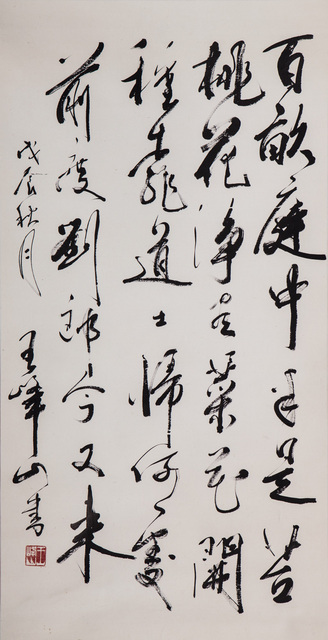 百畝庭中半是苔
桃花淨盡菜花開
種桃道士歸何處
前度劉郎今又来
戊辰秋月
王峯山書